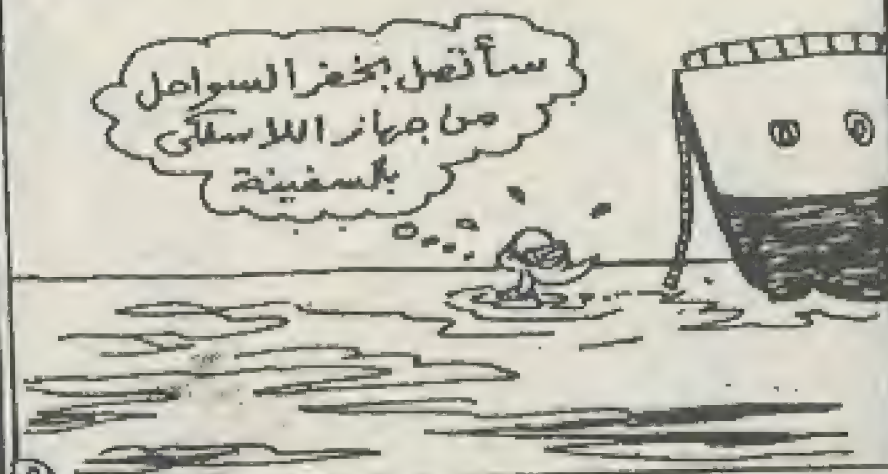 سأتصل بخفر السواحل
من جهاز اللاسلكى
بالسفينة